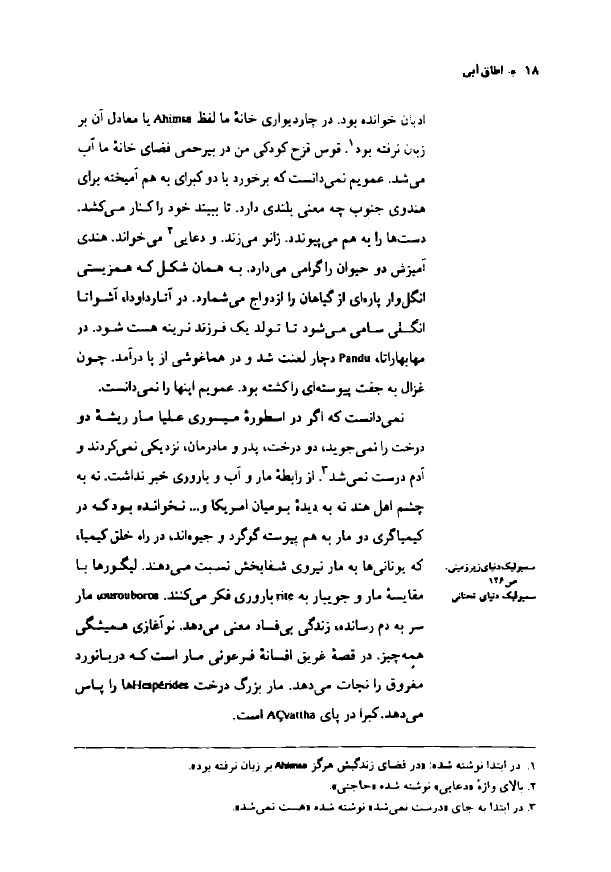 ۱۸ ● اطاق آبی
ادیان خوانده بود. در چاردیواری خانهٔ ما لفظ Ahimsa یا معادل آن بر
زبان نرفته بود۱. قوس قزح کودکی من در بیرحمی فضای خانهٔ ما آب
می‌شد. عمویم نمی‌دانست که برخورد با دو کبرای به هم آمیخته برای
هندوی جنوب چه معنی بلندی دارد. تا ببیند خود را کنار می‌کشد.
دست‌ها را به هم می‌پیوندد. زانو می‌زند. و دعایی۲ می‌خواند. هندی
آمیزش دو حیوان را گرامی می‌دارد. به همان شکل که همزیستی
انگل‌وار پاره‌ای از گیاهان را ازدواج می‌شمارد. در آتارداودا، آشواتا
انگلی سامی می‌شود تا تولد یک فرزند نرینه هست شود. در
مهابهاراتا، Pandu دچار لعنت شد و در هماغوشی از پا درآمد. چون
غزال به جفت پیوسته‌ای را کشته بود. عمویم اینها را نمی‌دانست.
نمی‌دانست که اگر در اسطورهٔ میسوری علیا مار ریشهٔ دو
درخت را نمی‌جوید، دو درخت، پدر و مادرمان، نزدیکی نمی‌کردند و
آدم درست نمی‌شد۳. از رابطهٔ مار و آب و باروری خبر نداشت. نه به
چشم اهل هند نه به دیدهٔ بومیان امریکا و... نخوانده بود که در
کیمیاگری دو مار به هم پیوسته گوگرد و جیوه‌اند، در راه خلق کیمیا،
که یونانی‌ها به مار نیروی شفابخش نسبت می‌دهند. لیگورها با
مقایسهٔ مار و جویبار به rite باروری فکر می‌کنند. ourouboros، مار
سر به دم رسانده، زندگی بی‌فساد معنی می‌دهد. نوآغازی همیشگی
همه‌چیز. در قصهٔ غریق افسانهٔ فرعونی مار است که دریانورد
مفروق را نجات می‌دهد. مار بزرگ درخت Hespéridesها را پاس
می‌دهد. کبرا در پای AÇvattha است.
سمبولیک دنیای زیرزمینی،
ص ۱۴۶
سمبولیک دنیای تحتانی
۱. در ابتدا نوشته شده: «در فضای زندگیش هرگز Ahimsa بر زبان نرفته بود».
۲. بالای واژهٔ «دعایی» نوشته شده «حاجتی».
۳. در ابتدا به جای «درست نمی‌شد» نوشته شده «هست نمی‌شد».